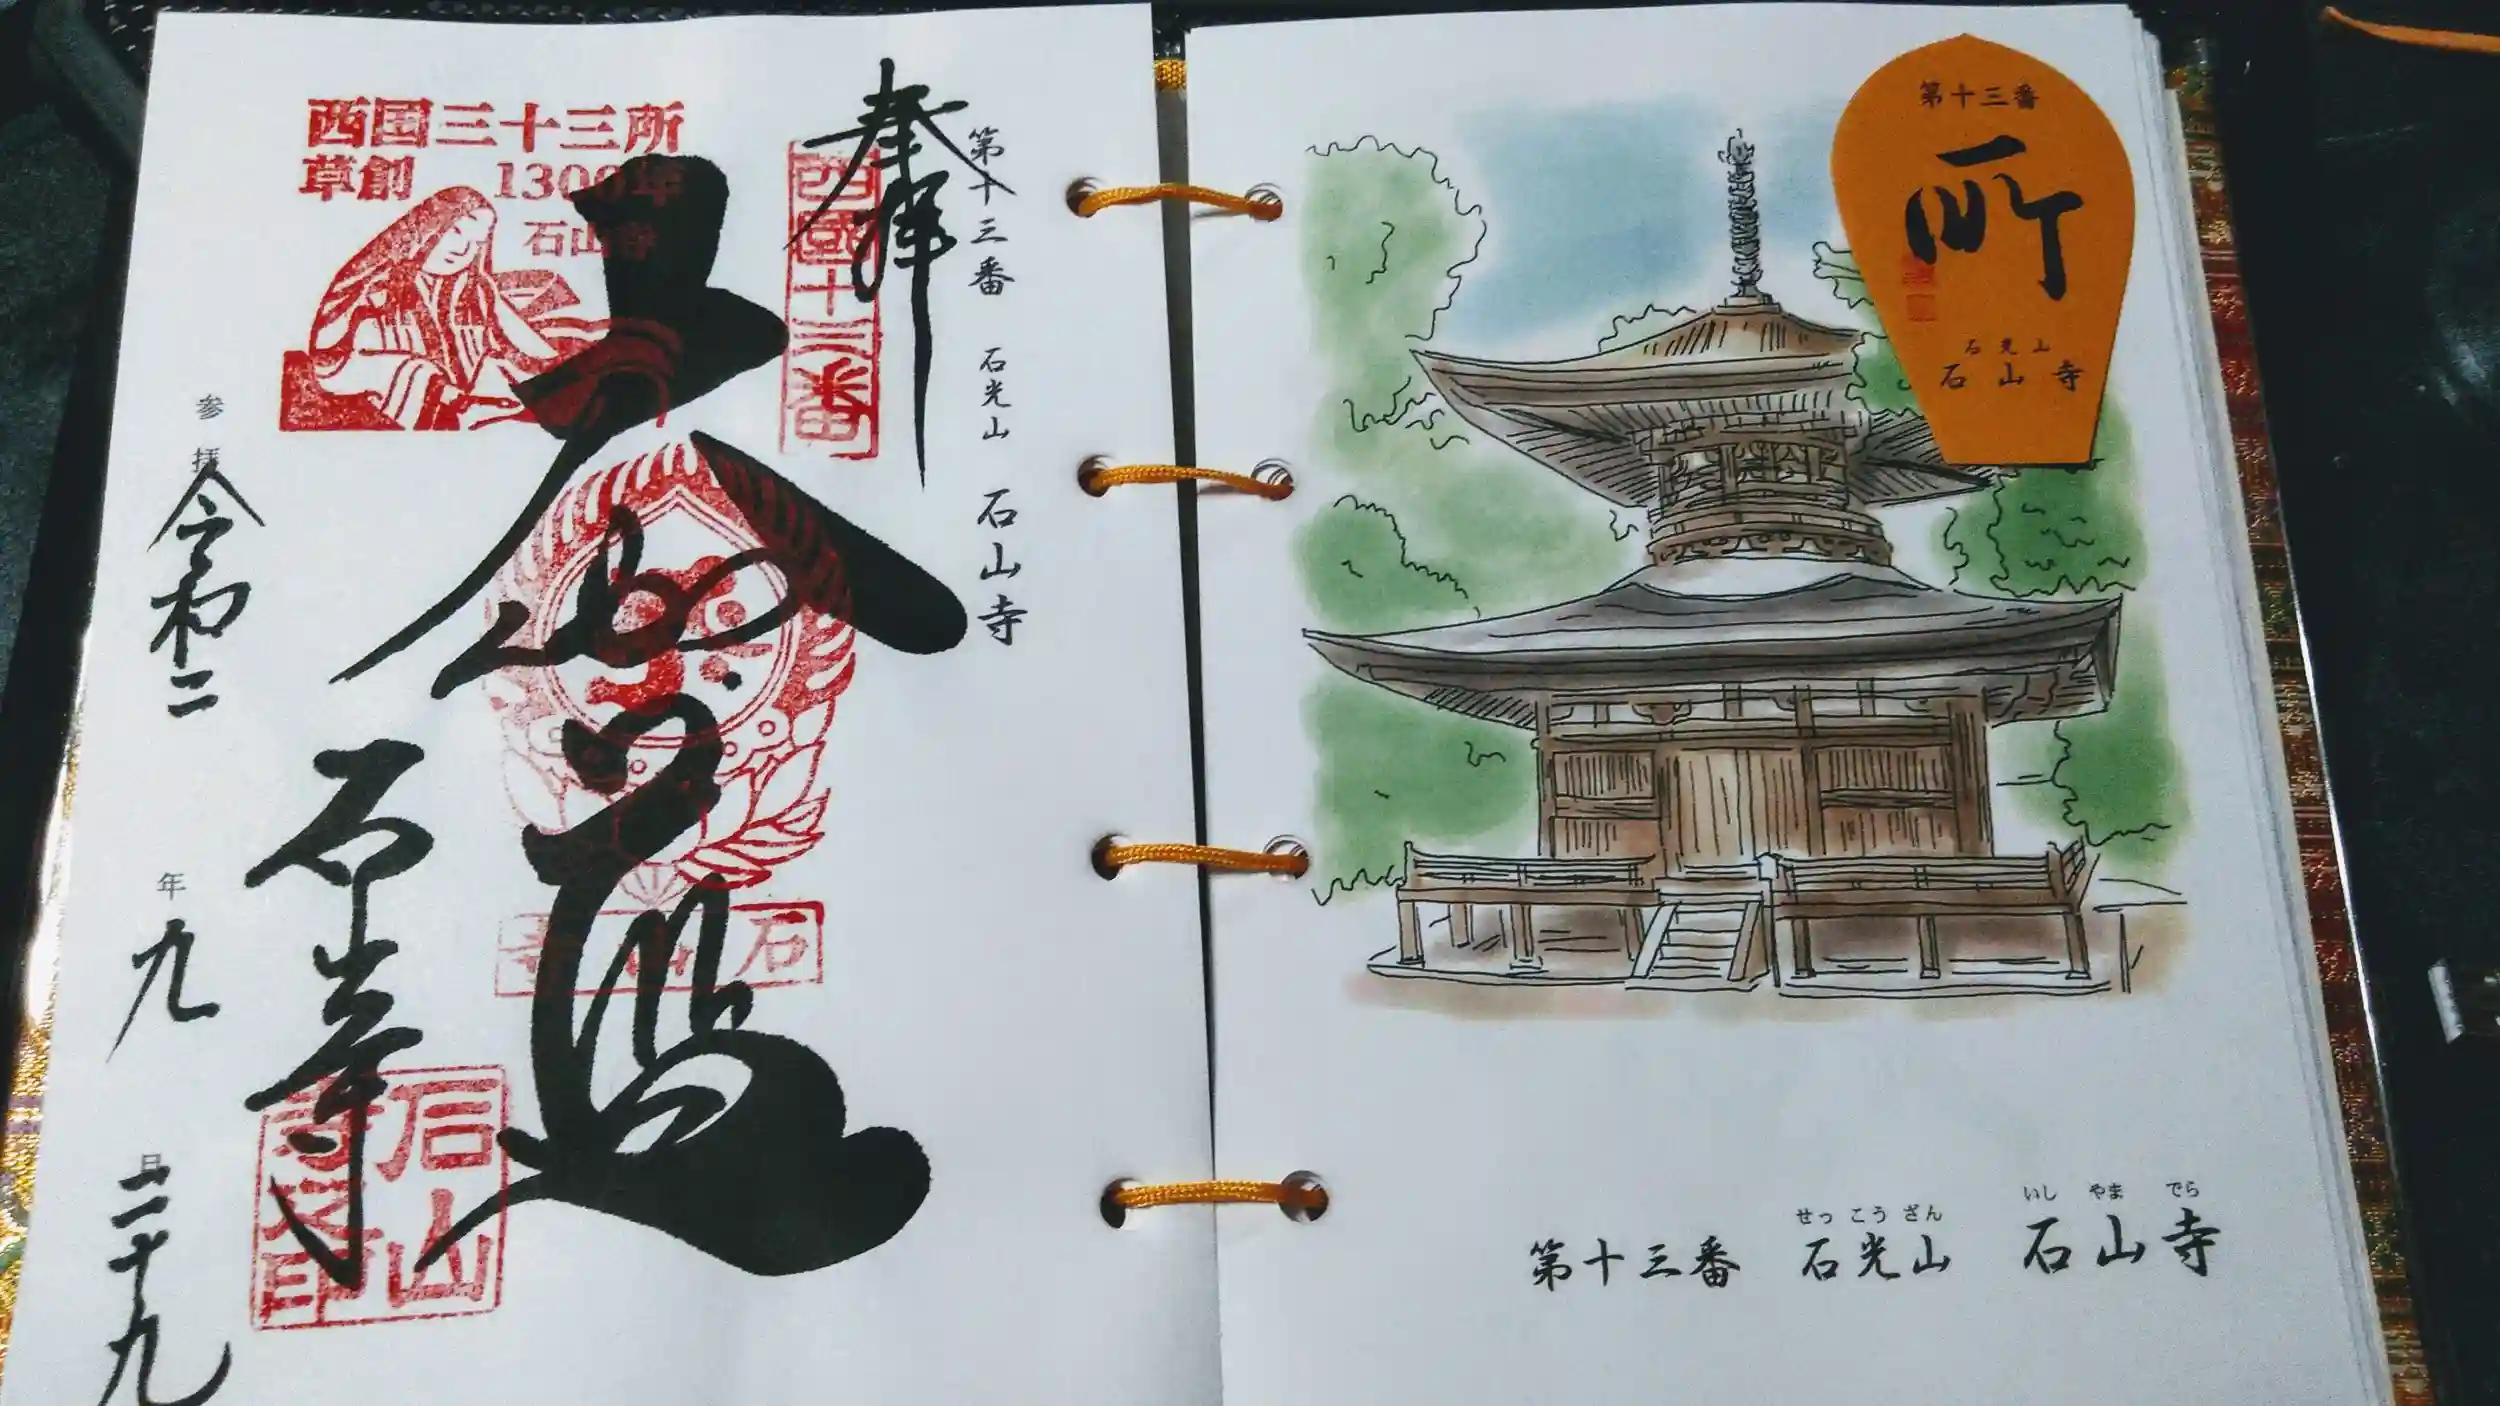 第十三番 石光山 石山寺
奉拝
西國十三番
西国三十三所
草創 1300年
石山寺
大悲殿
石山寺
石光山
石山寺印
参拝 令和二年 九月 二十九
第十三番
所
石光山
石山寺
せっこうざん いしやまでら
第十三番 石光山 石山寺